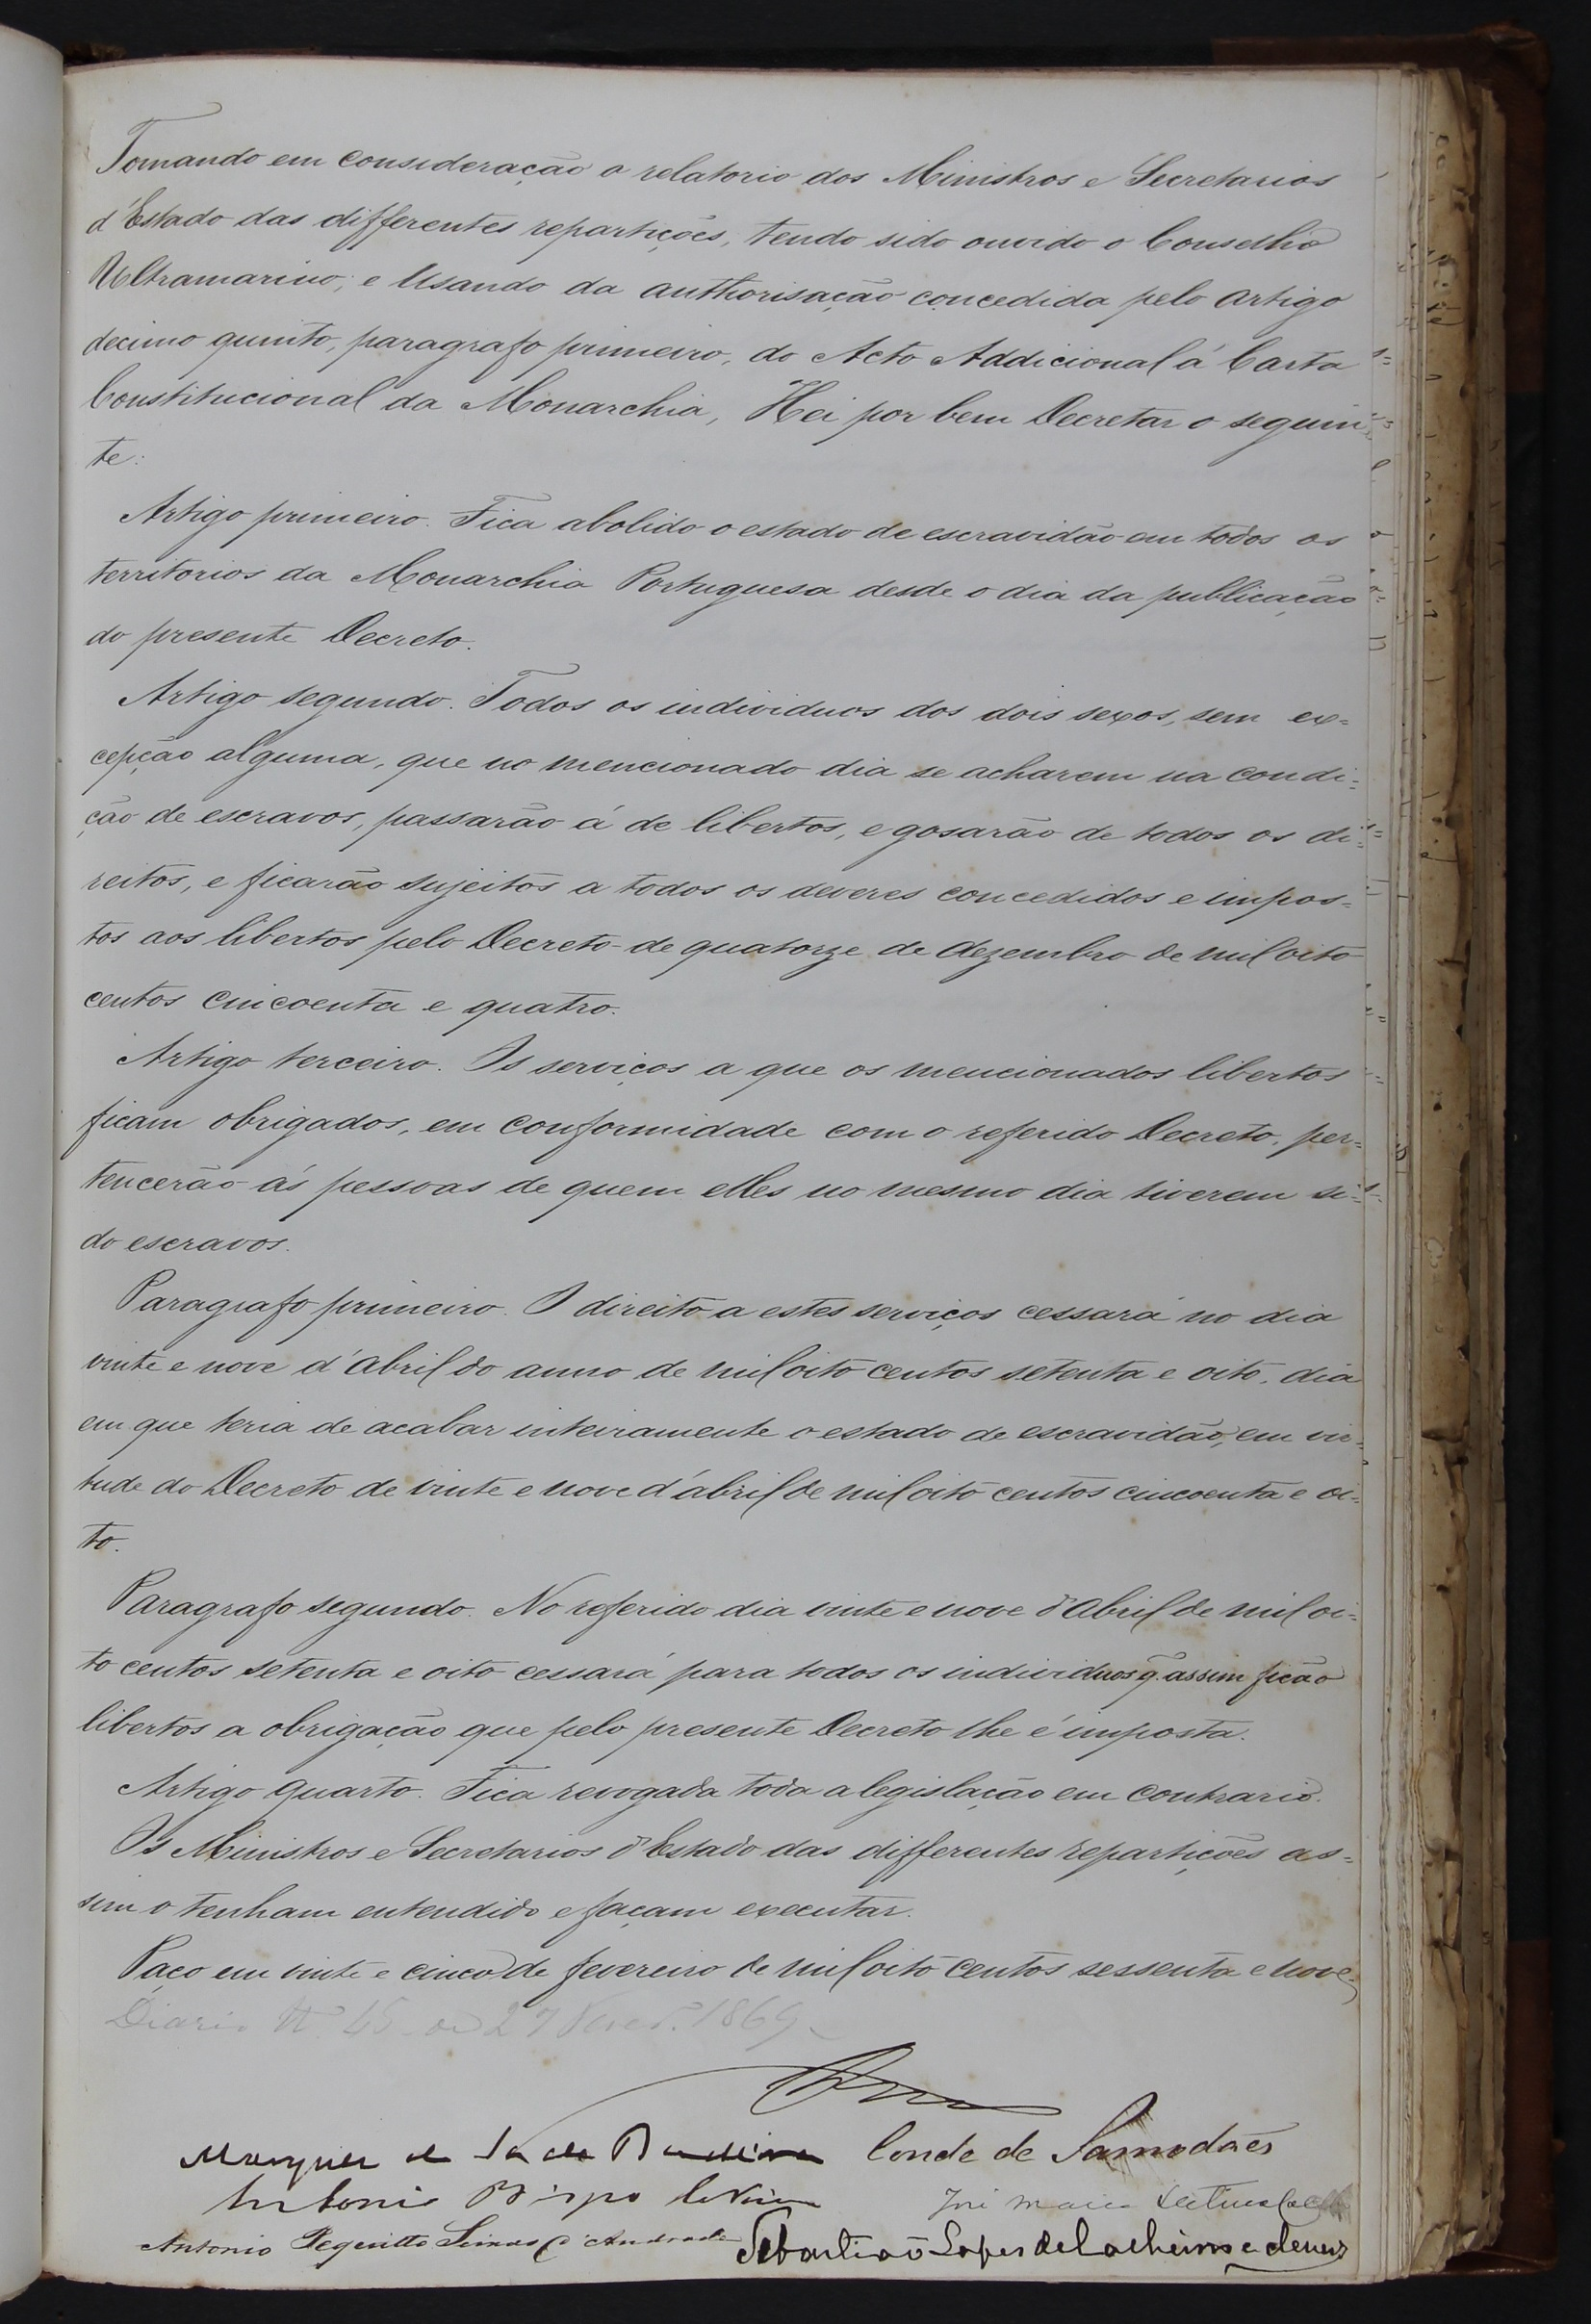 Tomando em consideração o relatorio dos Ministros e Secretarios
d'Estado das differentes repartições, tendo sido ouvido o Conselho
Ultramarino; e Usando da authorisação concedida pelo artigo
decimo quinto, paragrafo primeiro, do Acto Addicional á Carta
Constitucional da Monarchia, Hei por bem Decretar o seguin
te:
Artigo primeiro. Fica abolido o estado de escravidão em todos os
territorios da Monarchia Portuguesa desde o dia da publicação
do presente Decreto.
Artigo segundo. Todos os individuos dos dois sexos, sem ex=
cepção alguma, que no mencionado dia se acharem na condi=
ção de escravos, passarão á de libertos, e gosarão de todos os di=
reitos, e ficarão sujeitos a todos os deveres concedidos e impos=
tos aos libertos pelo Decreto de quatorze de dezembro de mil oito
centos cincoenta e quatro.
Artigo terceiro. Os serviços a que os mencionados libertos
ficam obrigados, em conformidade com o referido Decreto, per=
tencerão ás pessoas de quem elles no mesmo dia tiverem si=
do escravos.
Paragrafo primeiro. O direito a estes serviços cessará no dia
vinte e nove d'abril do anno de mil oito centos setenta e oito, dia
em que teria de acabar inteiramente o estado de escravidão, em vir=
tude do Decreto de vinte e nove d'abril de mil oito centos cincoenta e oi=
to.
Paragrafo segundo. No referido dia vinte e nove d'abril de mil oi=
to centos setenta e oito cessará para todos os individuos q. assim ficão
libertos a obrigação que pelo presente Decreto lhe é imposta.
Artigo quarto. Fica revogada toda a legislação em contrario.
Os Ministros e Secretarios d'Estado das differentes repartições as=
sim o tenham entendido e façam executar.
Paço em vinte e cinco de fevereiro de mil oito centos sessenta e nove
Diario Nº 45 de 27 Fever. 1869
Marquez de Sá da Bandeira Conde de Samodães
Antonio Bispo de Vizeu José Maria Latino Coelho
Antonio Pequitto Seixas d'Andrade Sebastião Lopes de Calheiros e Menezes